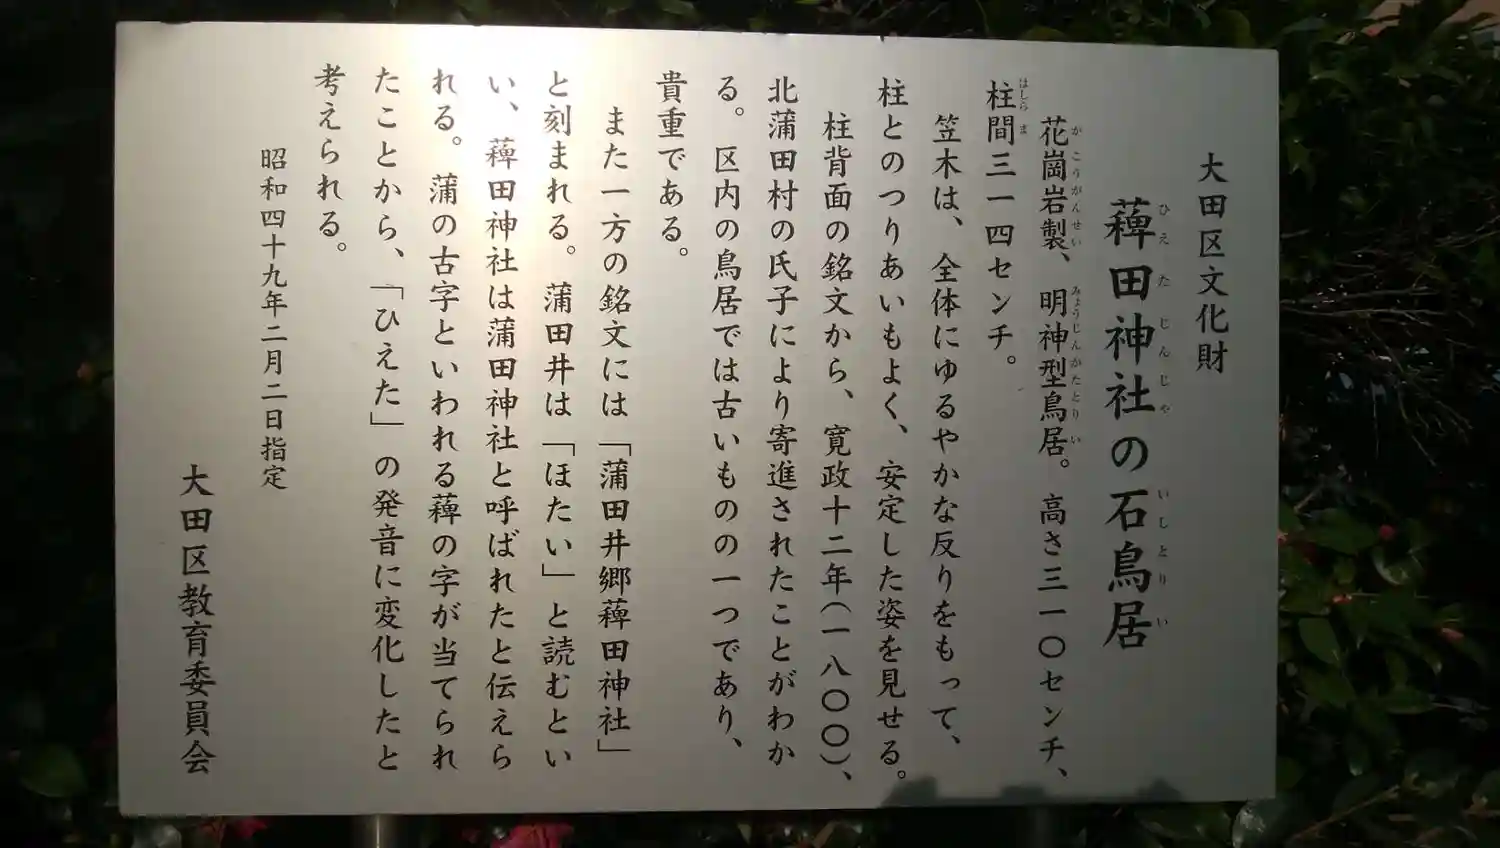 大田区文化財
薭田神社の石鳥居
ひえたじんじゃ いしとりい
花崗岩製、明神型鳥居。高さ三一〇センチ、
かこうがんせい みょうじんかたとりい
柱間三一四センチ。
はしらま
笠木は、全体にゆるやかな反りをもって、
柱とのつりあいもよく、安定した姿を見せる。
柱背面の銘文から、寛政十二年(一八〇〇)、
北蒲田村の氏子により寄進されたことがわか
る。区内の鳥居では古いものの一つであり、
貴重である。
また一方の銘文には「蒲田井郷薭田神社」
と刻まれる。蒲田井は「ほたい」と読むとい
い、薭田神社は蒲田神社と呼ばれたと伝えら
れる。蒲の古字といわれる薭の字が当てられ
たことから、「ひえた」の発音に変化したと
考えられる。
昭和四十九年二月二日指定
大田区教育委員会